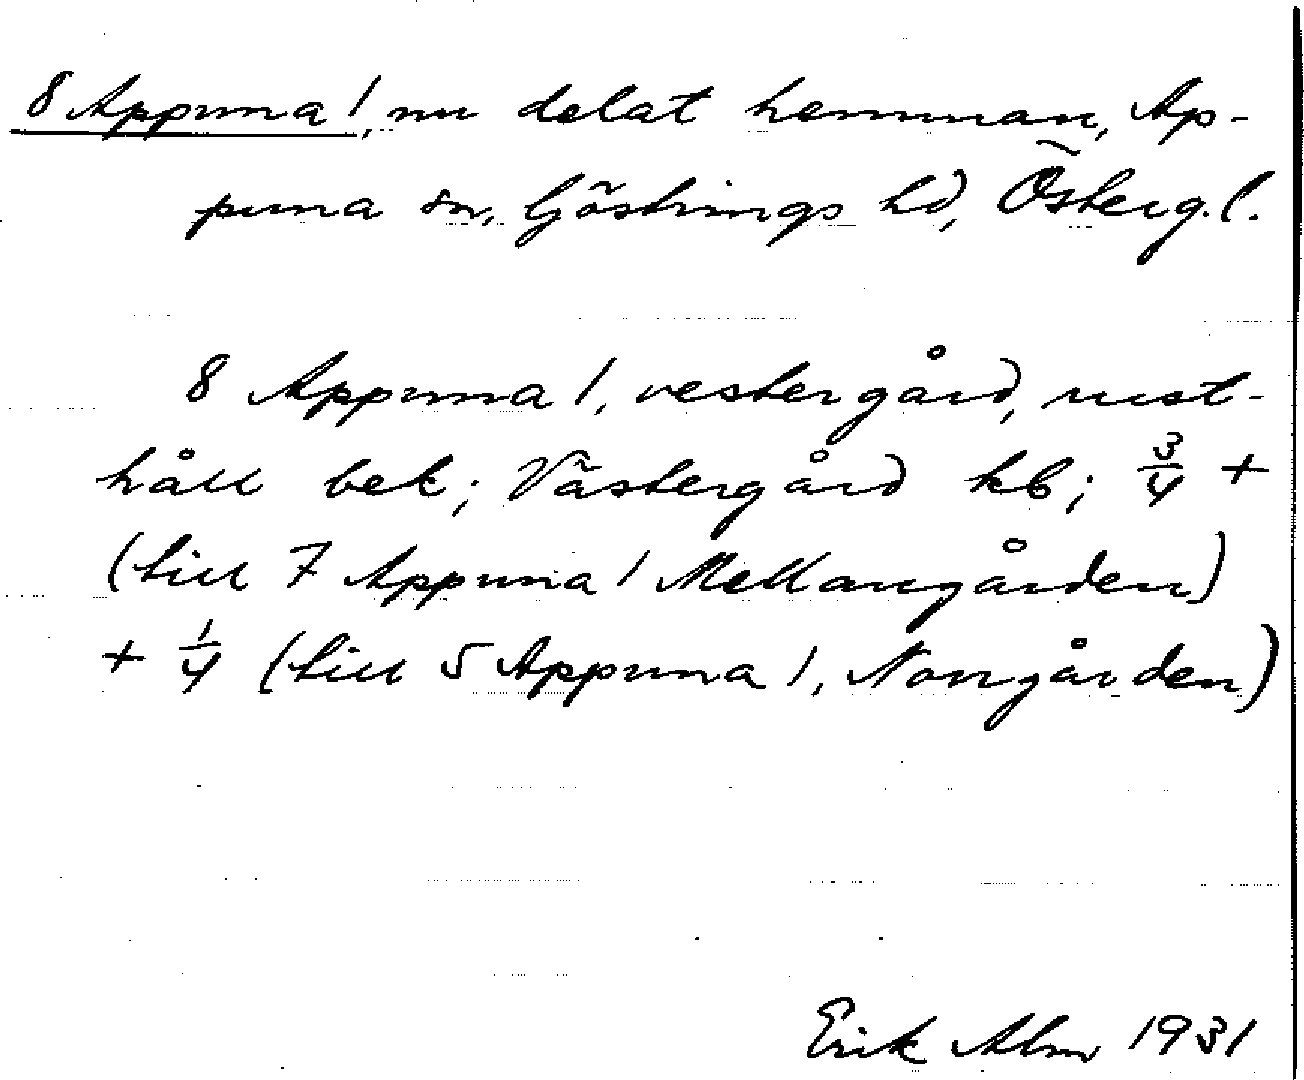 8 Appuna 1, nu delat hemman, Ap-
puna sn, Göstrings hd, Österg.l.
8 Appuna 1, vestergård, rust-
håll bek; Västergård kb; 3/4 +
(till 7 Appuna 1 Mellangården)
+ 1/4 (till 5 Appuna 1, Norrgården)
Erik Alm 1931